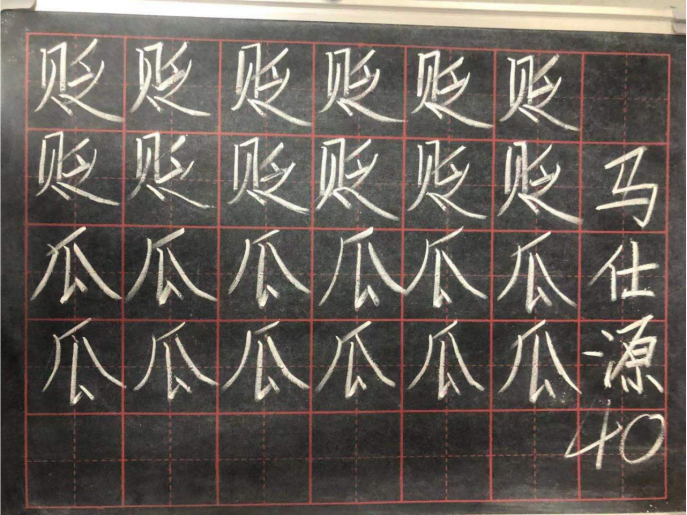 贬贬贬贬贬贬
贬贬贬贬贬贬
瓜瓜瓜瓜瓜瓜
瓜瓜瓜瓜瓜瓜
马仕源
40